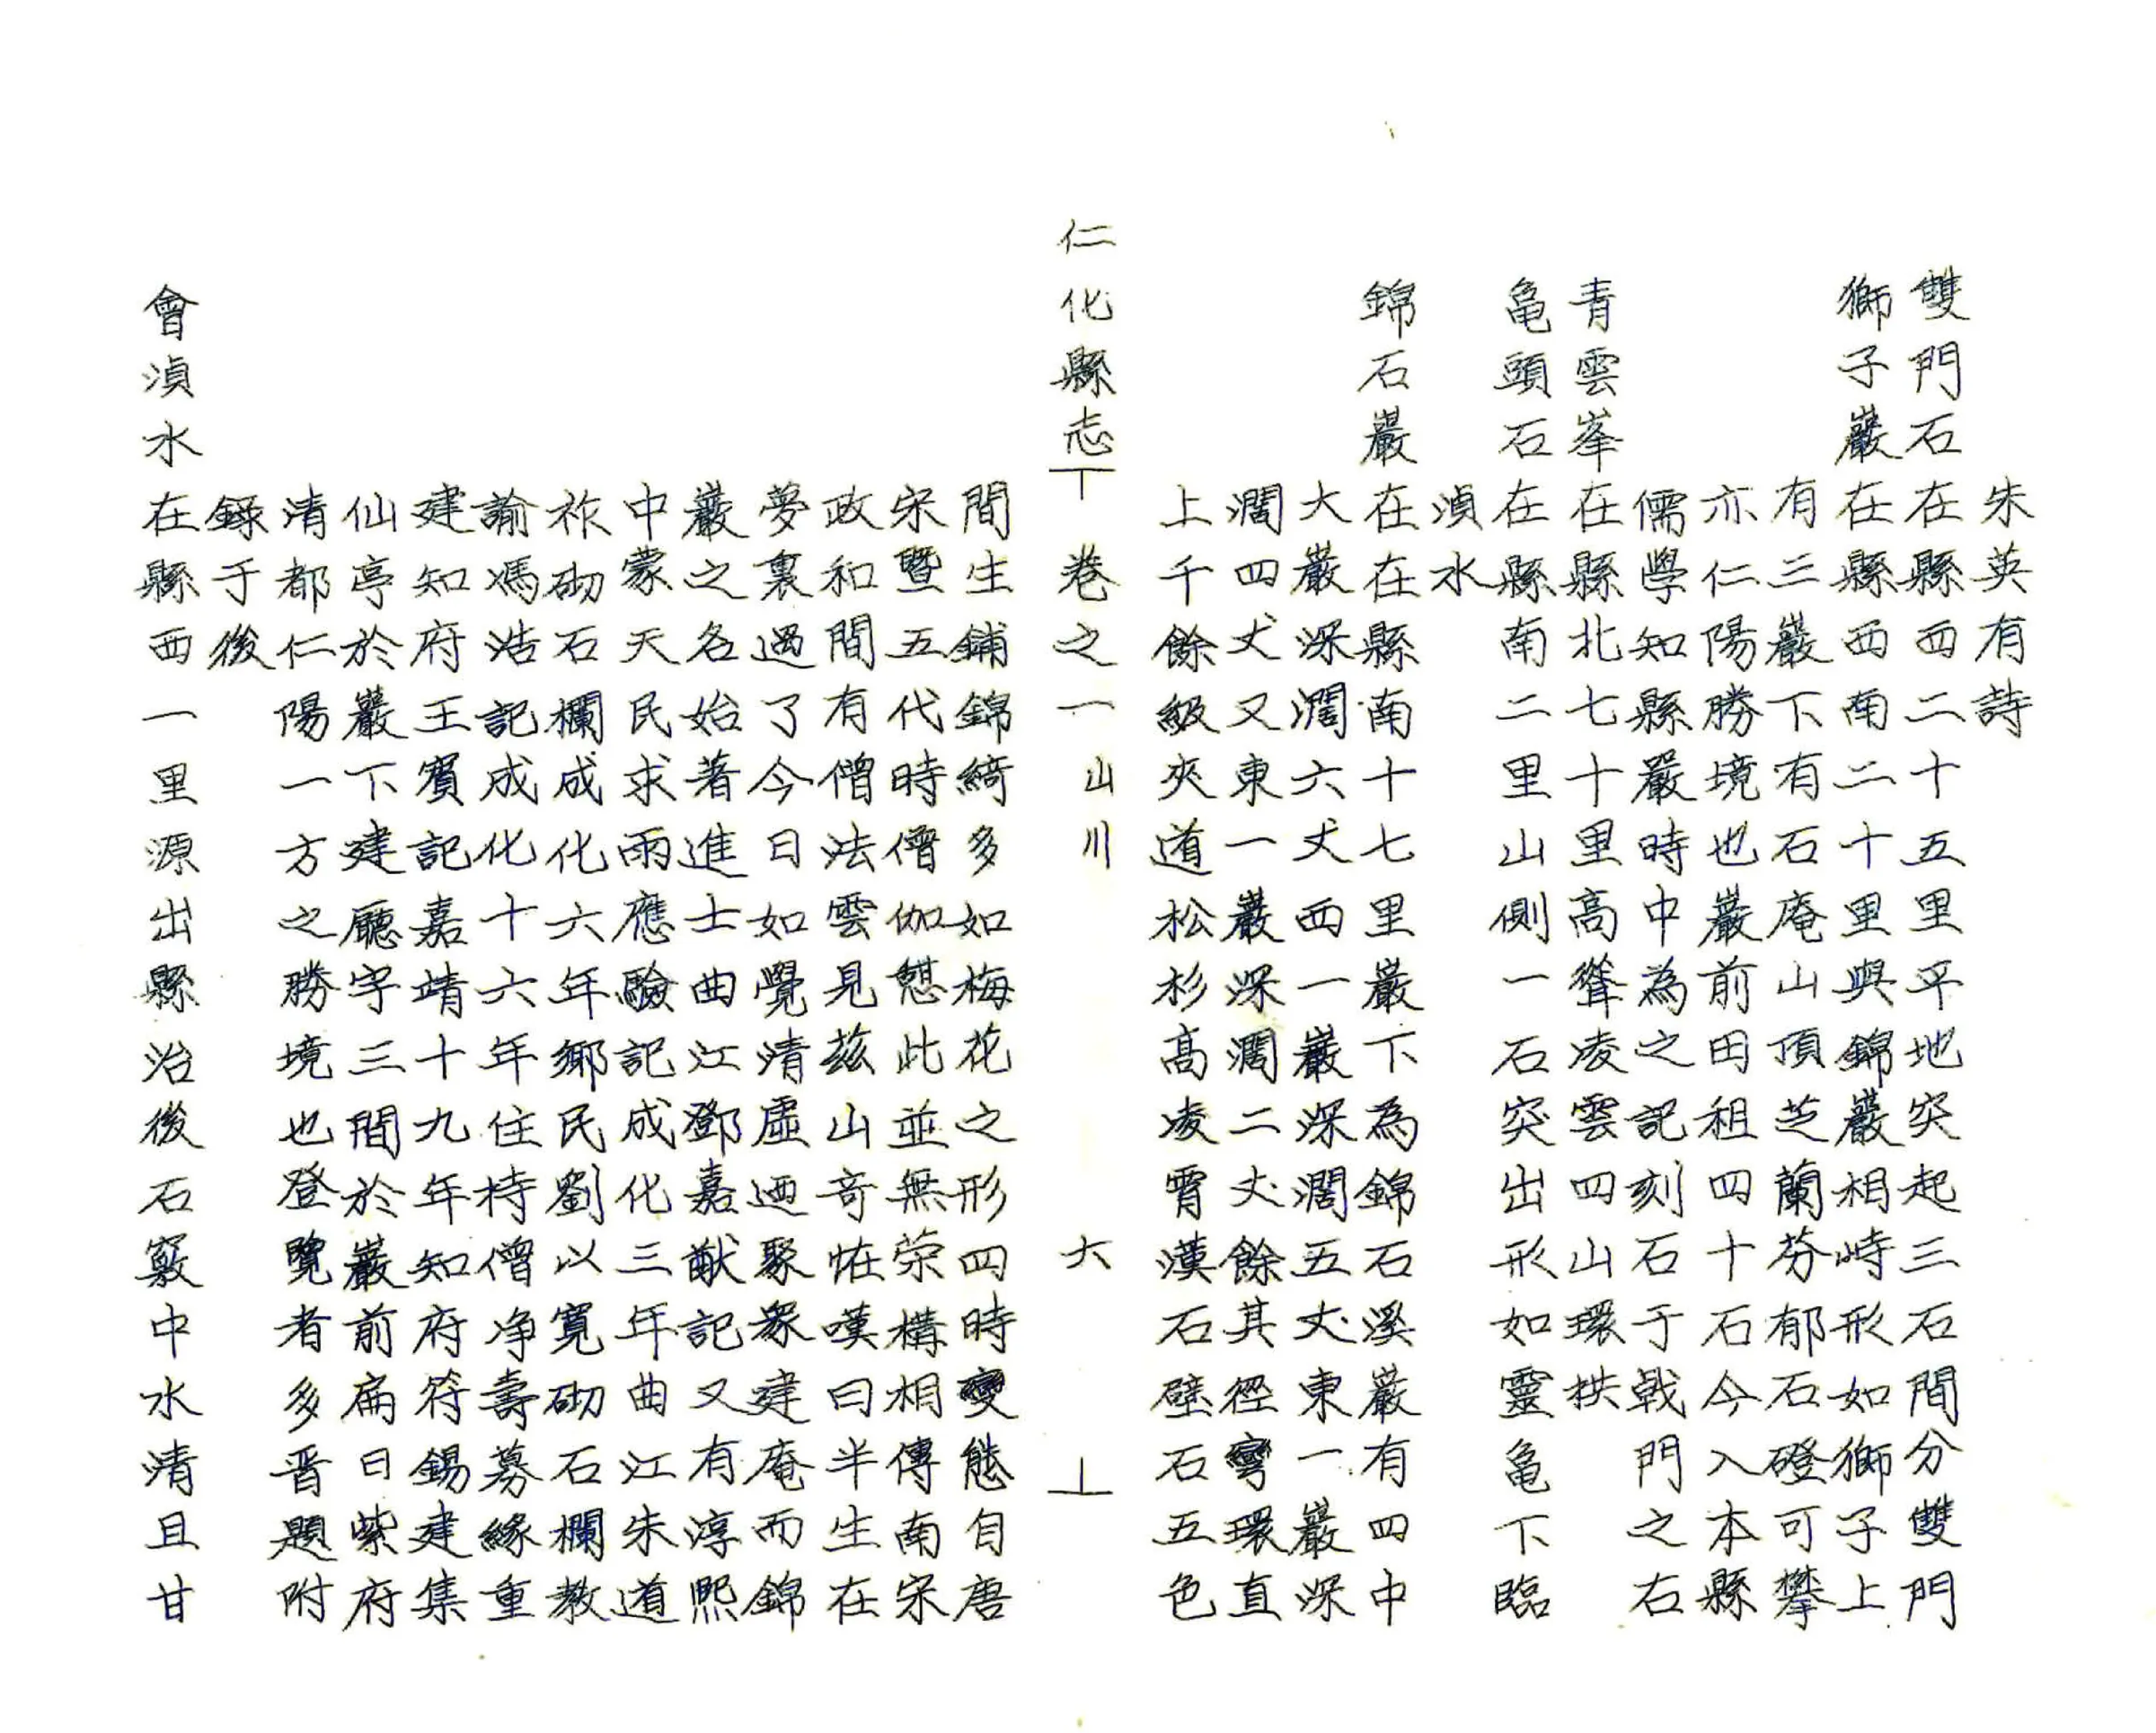 朱英有詩
雙門石在縣西二十五里平地突起三石間分雙門
獅子巖在縣西南二十里與錦巖相峙形如獅子上
有三巖下有石庵山頂芝蘭芬郁石磴可攀
亦仁陽勝境也巖前田租四十石今入本縣
儒學知縣嚴時中為之記刻石于戟門之右
青雲峯在縣北七十里高聳凌雲四山環拱
龜頭石在縣南二里山側一石突出形如靈龜下臨
湞水
錦石巖在在縣南十七里巖下為錦石溪巖有四中
大巖深濶六丈西一巖深濶五丈東一巖深
濶四丈又東一巖深濶二丈餘其徑彎環直
上千餘級夾道松杉高凌霄漢石壁石五色
仁化縣志 卷之一 山川 六
間生鋪錦綺多如梅花之形四時變態自唐
宋暨五代時僧伽憇此並無荣構相傳南宋
政和間有僧法雲見茲山竒恠嘆曰半生在
夢裏過了今日如覺清虛迺聚衆建庵而錦
巖之名始著進士曲江鄧嘉猷記又有淳熙
中蒙天民求雨應驗記成化三年曲江朱道
祚砌石欄成化六年鄉民劉以寬砌石欄教
諭馮浩記成化十六年住持僧净壽募緣重
建知府王賓記嘉靖十九年知府符錫建集
仙亭於巖下建廳宇三間於巖前扁曰紫府
清都仁陽一方之勝境也登覽者多晋題附
錄于後
會湞水在縣西一里源出縣治後石竅中水清且甘